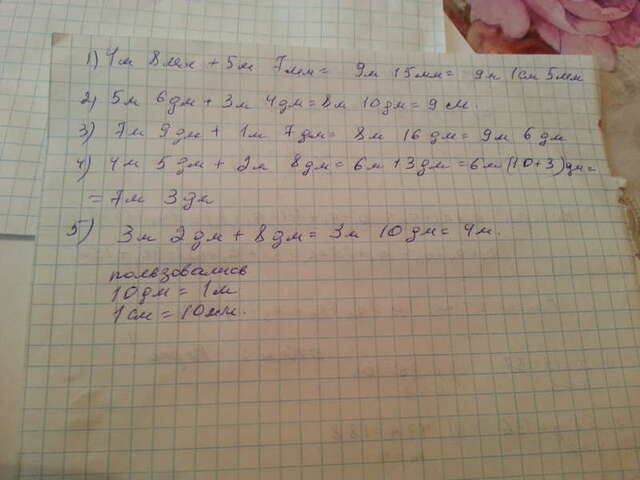 1) 4м 8мм + 5м 7мм = 9м 15мм = 9м 1см 5мм
2) 5м 6дм + 3м 4дм = 8м 10дм = 9см.
3) 7м 9дм + 1м 7дм = 8м 16дм = 9м 6дм
4) 4м 5дм + 2м 8дм = 6м + 3дм = 6м (10+3)дм =
= 7м 3дм
5) 3м 2дм + 8дм = 3м 10дм = 4м.
пользовались
10дм = 1м
1см = 10мм.